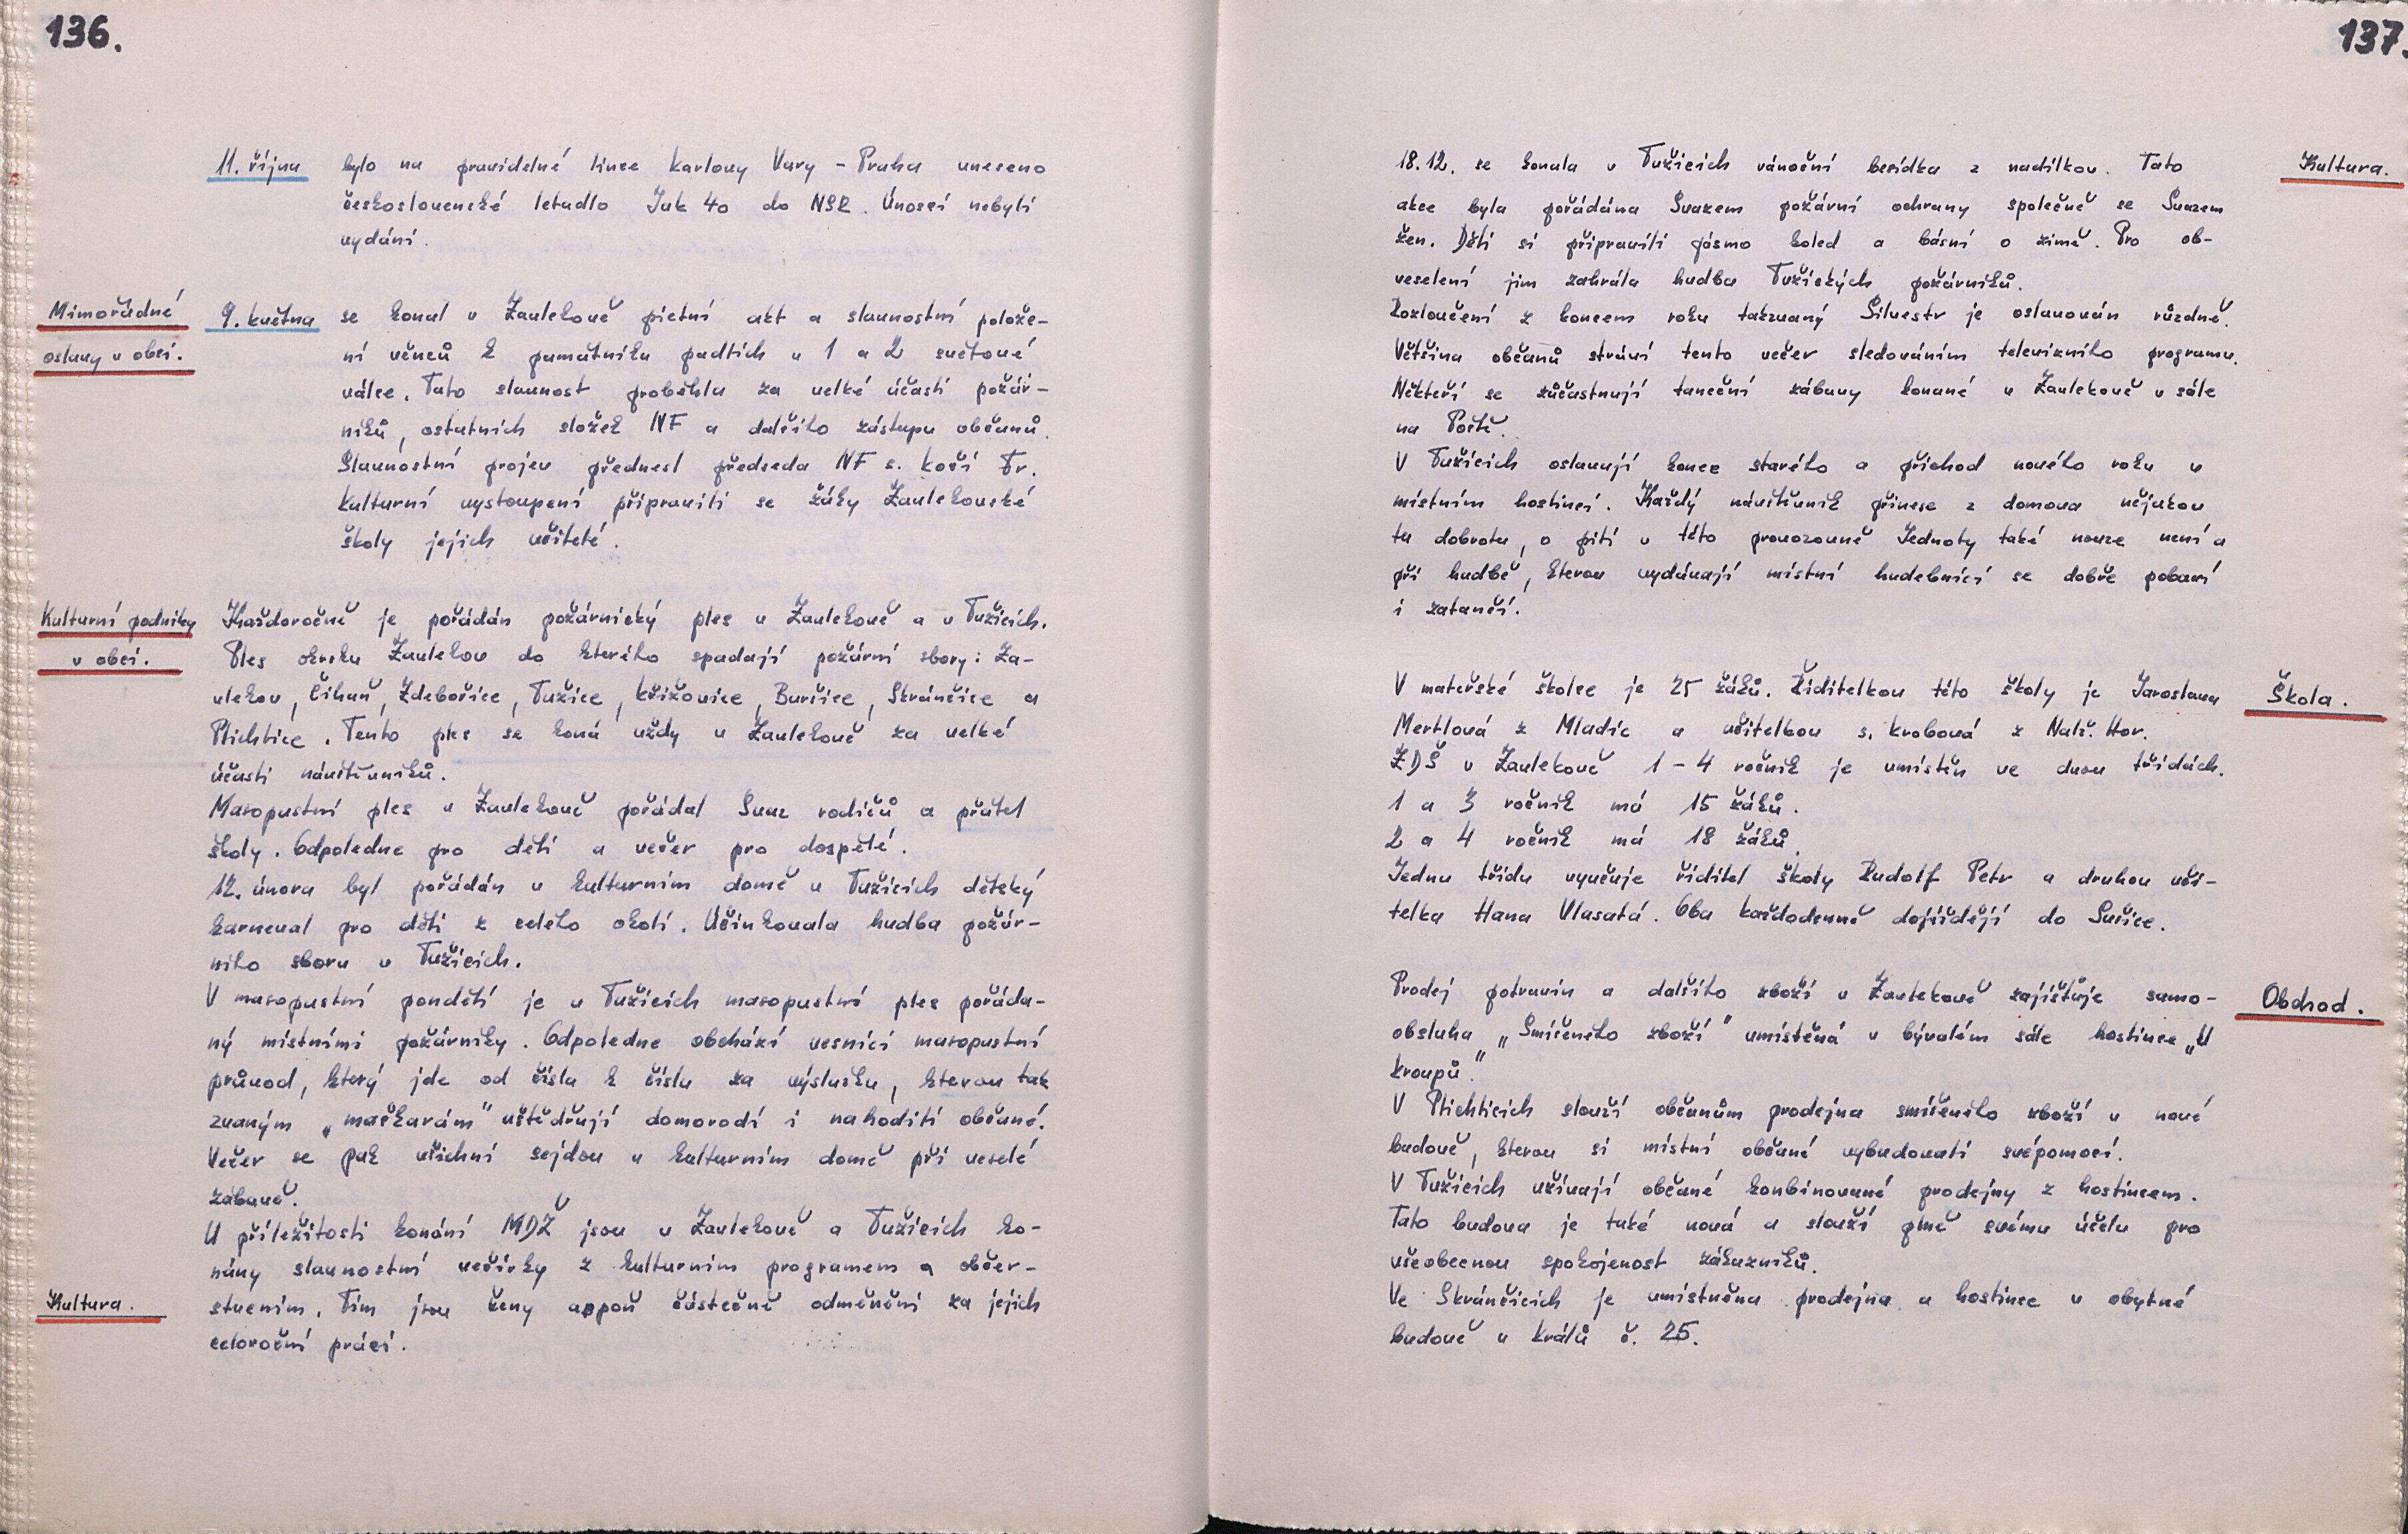 136.
11. října bylo na pravidelné lince Karlovy Vary - Praha uneseno
československé letadlo Jak 40 do NSR. Únosci nebyli
vydáni.
Mimořádné
oslavy v obci.
9. května se konal v Zavlekově pietní akt a slavnostní polože-
ní věnců k památníku padlích v 1 a 2 světové
válce. Tato slavnost proběhla za velké účasti požár-
níků, ostatních složek NF a dalšího zástupu občanů.
Slavnostní projev přednesl předseda NF s. Kočí Fr.
Kulturní vystoupení připravili se žáky Zavlekovské
školy jejich učitelé.
Kulturní podniky
v obci.
Každoročně je pořádán požárnický ples v Zavlekově a v Tužicích.
Ples okrsku Zavlekov do kterého spadají požární sbory: Za-
vlekov, Číhaň, Zdebořice, Tužice, Křížovice, Burčice, Skránčice a
Plichtice. Tento ples se koná vždy v Zavlekově za velké
účasti návštěvníků.
Masopustní ples v Zavlekově pořádal Svaz rodičů a přátel
školy. Odpoledne pro děti a večer pro dospělé.
12. února byl pořádán v kulturním domě v Tužicích dětský
karneval pro děti z celého okolí. Účinkovala hudba požár-
ního sboru v Tužicích.
V masopustní pondělí je v Tužicích masopustní ples pořáda-
ný místními požárníky. Odpoledne obchází vesnicí masopustní
průvod, který jde od čísla k číslu za výslužku, kterou tak
zvaným „maškarám" uštědřují domorodí i nahodilí občané.
Večer se pak všichni sejdou v kulturním domě při veselé
zábavě.
U příležitosti konání MDŽ jsou v Zavlekově a Tužicích ko-
nány slavnostní večírky z kulturním programem a občer-
Kultura.
stvením. Tím jsou ženy aspoň částečně odměněni za jejich
celoroční práci.
137.
18.12. se konala v Tužicích vánoční besídka z nadílkou. Tato
Kultura.
akce byla pořádána Svazem požární ochrany společně se Svazem
žen. Děti si připravili pásmo koled a básní o zimě. Pro ob-
veselení jim zahrála hudba Tužických požárníků.
Rozloučení z koncem roku takzvaný Silvestr je oslavován různě.
Většina občanů stráví tento večer sledováním televizního programu.
Někteří se zůčastnují taneční zábavy konané v Zavlekově v sále
na Poště.
V Tužicích oslavují konec starého a příchod nového roku v
místním hostinci. Každý návštěvník přinese z domova nějakou
tu dobrotu, o pití v této provozovně Jednoty také nouze není a
při hudbě, kterou vydávají místní hudebníci se dobře pobaví
i zatančí.
V mateřské školce je 25 žáků. Ředitelkou této školy je Jaroslava
Škola.
Mertlová z Mladic a učitelkou s. Krobová z Nalž. Hor.
ZDŠ v Zavlekově 1 - 4 ročník je umístěn ve dvou třídách.
1 a 3 ročník má 15 žáků.
2 a 4 ročník má 18 žáků.
Jednu třídu vyučuje řiditel školy Rudolf Petr a druhou uči-
telka Hana Vlasatá. Oba každodenně dojíždějí do Sušice.
Prodej potravin a dalšího zboží v Zavlekově zajišťůje samo-
Obchod.
obsluha „Smíšeného zboží" umístěná v bývalém sále hostince „U
Kroupů."
V Plichticích slouží občanům prodejna smíšeného zboží v nové
budově, kterou si místní občané vybudovali svépomocí.
V Tužicích užívají občané konbinované prodejny z hostincem.
Tato budova je také nová a slouží plně svému účelu pro
všeobecnou spokojenost zákazníků.
Ve Skránčicích je umístněna prodejna a hostinec v obytné
budově u Králů č. 25.